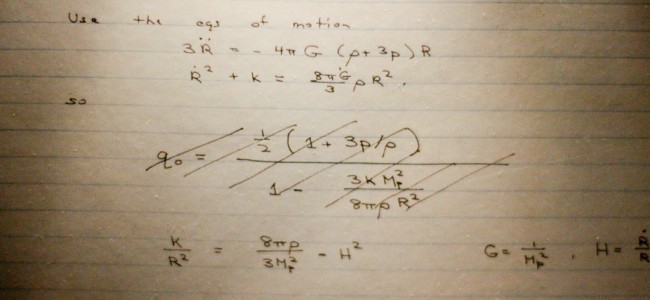 Use the eqs of motion
3R̈ = - 4π G (ρ + 3p) R
Ṙ² + k = 8πG/3 ρ R².
so
q₀ = ½ (1 + 3p/ρ) / (1 - 3k Mₚ²/8πρ R²)
k/R² = 8πρ/3Mₚ² - H² G = 1/Mₚ² , H = Ṙ/R